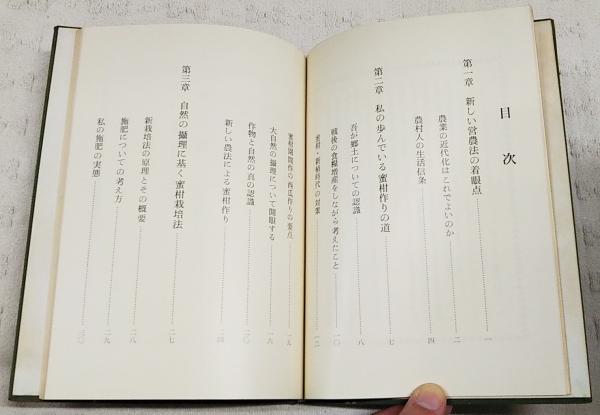 目次
第一章 新しい営農法の着眼点 一
農業の近代化はこれでよいのか 二
農村人の生活信条 四
第二章 私の歩んでいる蜜柑作りの道 七
吾が郷土についての認識 八
戦後の食糧増産をしながら考えたこと 一〇
蜜柑・新植時代の対策 一二
蜜柑園間作の西瓜作りの要点 一五
大自然の摂理について開眼する 一六
作物と自然の真の認識 二〇
新しい農法による蜜柑作り 二四
第三章 自然の攝理に基く蜜柑栽培法 二七
新栽培法の原理とその概要 二八
施肥についての考え方 二九
私の施肥の実態 三〇